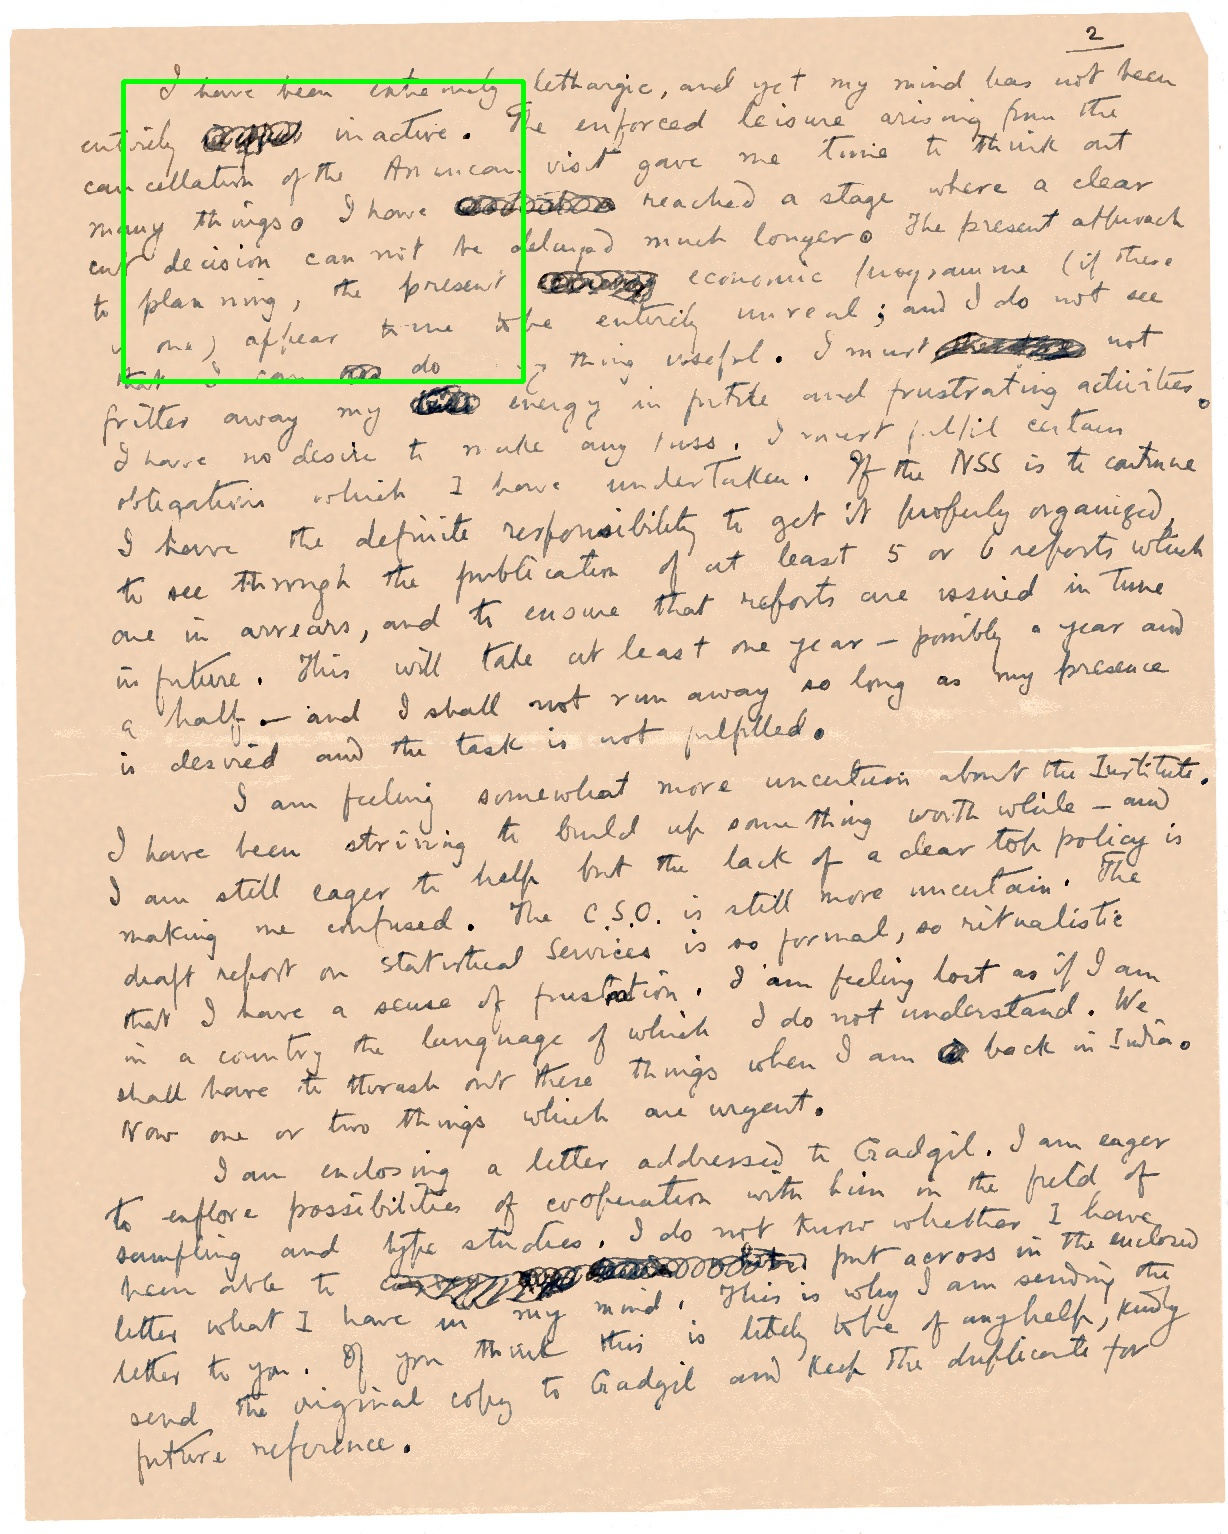 2
I have been extremely lethargic, and yet my mind has not been
entirely inactive. The enforced leisure arising from the
cancellation of the American visit gave me time to think out
many things. I have reached a stage where a clear
cut decision can not be delayed much longer. The present approach
to planning, the present economic programme (if there
is one) appear to me to be entirely unreal; and I do not see
that I can do any thing useful. I must not
fritter away my energy in futile and frustrating activities.
I have no desire to make any fuss. I must fulfil certain
obligations which I have undertaken. If the NSS is to continue
I have the definite responsibility to get it properly organized,
to see through the publication of at least 5 or 6 reports which
are in arrears, and to ensure that reports are issued in time
in future. This will take at least one year – possibly a year and
a half – and I shall not run away so long as my presence
is desired and the task is not fulfilled.
I am feeling somewhat more uncertain about the Institute.
I have been striving to build up some thing worth while – and
I am still eager to help but the lack of a clear top policy is
making me confused. The C.S.O. is still more uncertain. The
draft report on Statistical Services is so formal, so ritualistic
that I have a sense of frustration. I am feeling lost as if I am
in a country the language of which I do not understand. We
shall have to thrash out these things when I am back in India.
Now one or two things which are urgent.
I am enclosing a letter addressed to Gadgil. I am eager
to explore possibilities of cooperation with him in the field of
sampling and type studies. I do not know whether I have
been able to put across in the enclosed
letter what I have in my mind. This is why I am sending the
letter to you. If you think this is likely to be of any help, kindly
send the original copy to Gadgil and keep the duplicate for
future reference.